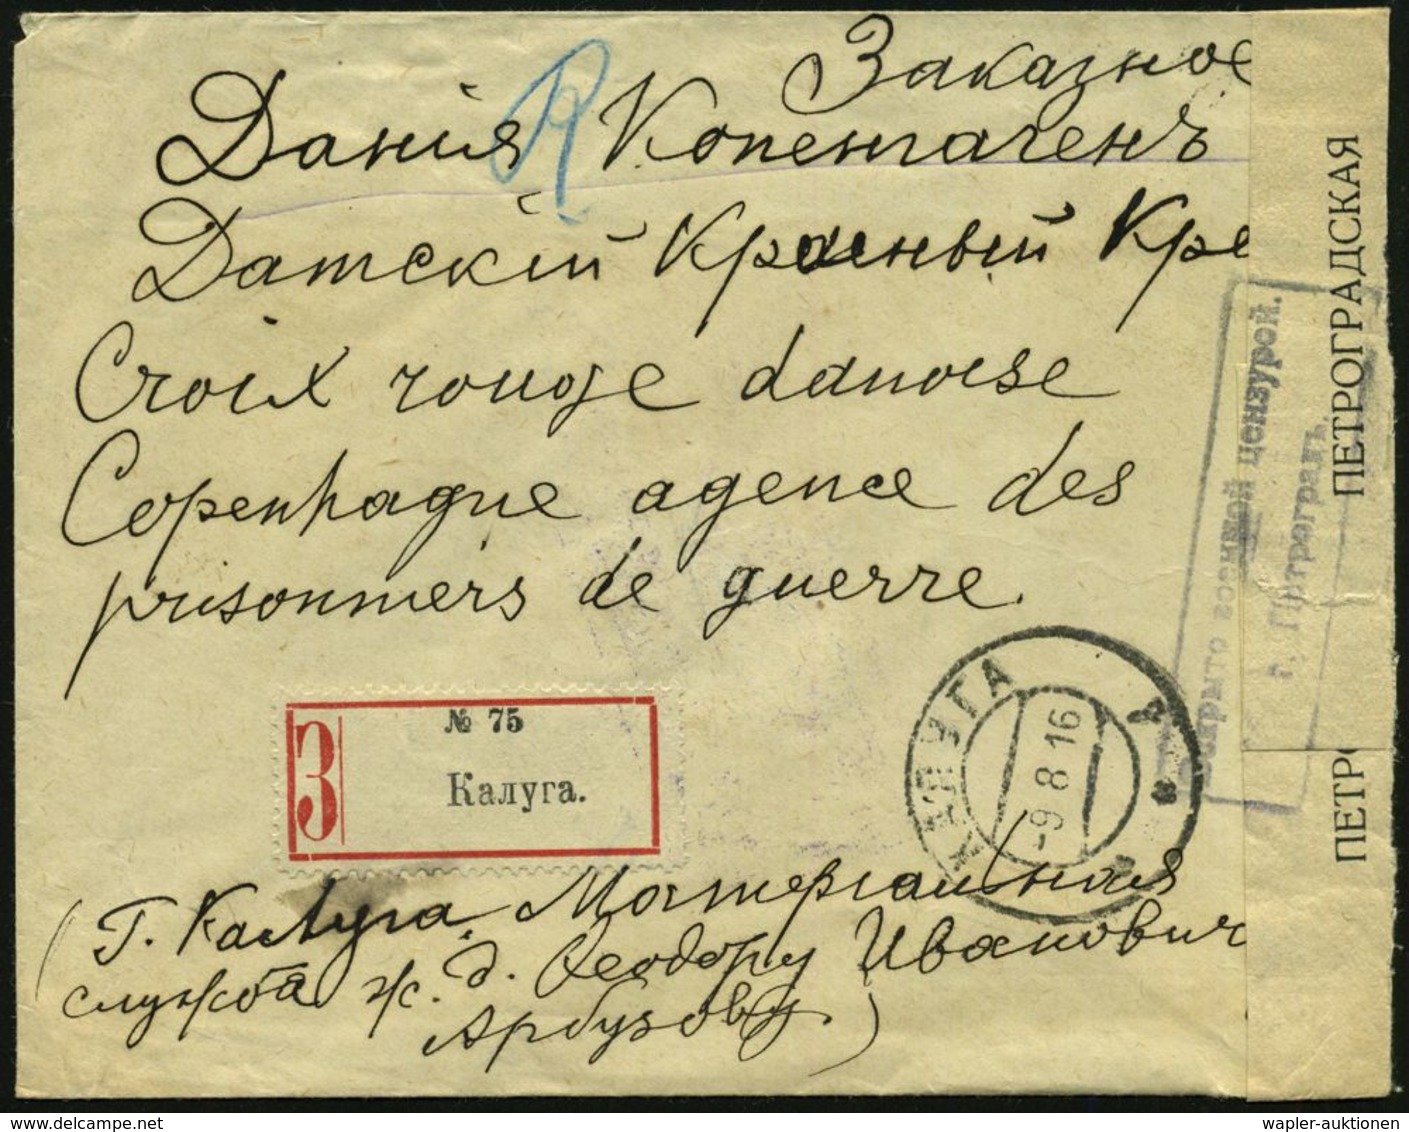 Заказное
Данія R Копенгагенъ
Датскій Красный Кре
Croix rouge danoise
Copenhague agence des
prisonniers de guerre.
№ 75
З
Калуга.
КАЛУГА
-9 8 16
ПЕТРОГРАДСКАЯ
ПЕТРО
военной цензурой.
г. Петроградъ.
(Г. Калуга. Матеріальная
служба ж. д. Ѳеодору Ивановичу
Арбузову.)
wapler-auktionen